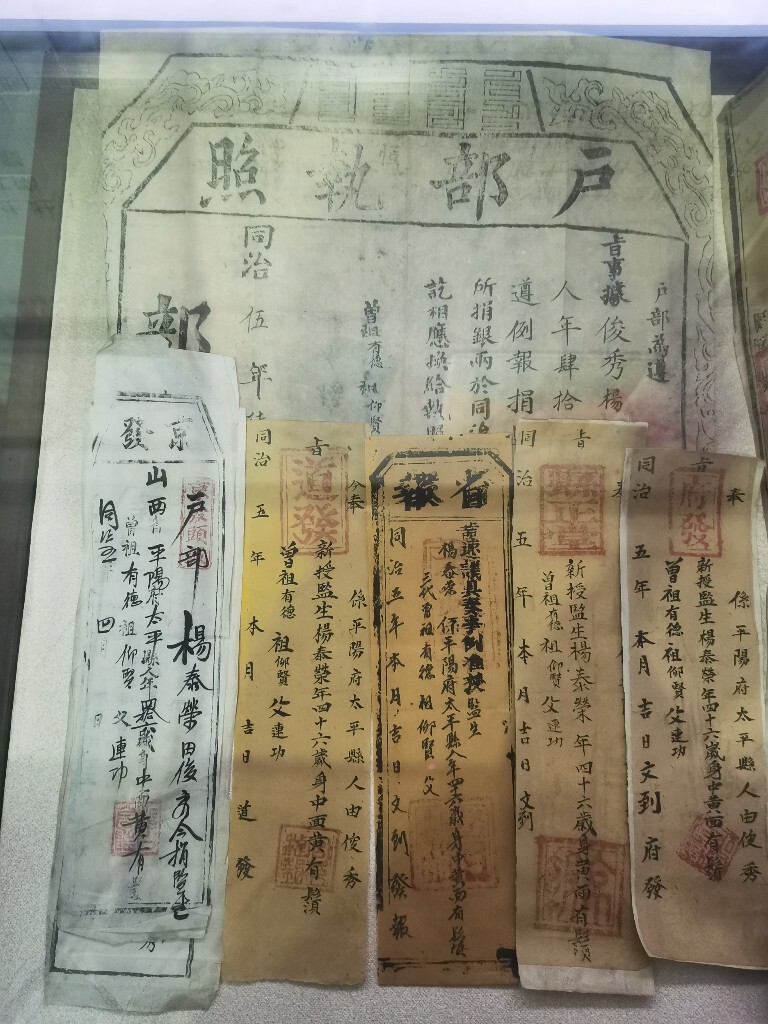 戶部執照
戶部為遵
旨事據俊秀楊
人年肆拾
遵例報捐
所捐銀兩於同治
訖相應換給執照
曾祖有德 祖仰賢
同治伍年
部
奉
旨
府發
係平陽府太平縣人由俊秀
新授監生楊泰榮年四十六歲身中黃面有鬚
曾祖有德 祖仰賢 父連功
同治五年本月吉日文到府發
旨
縣正堂
新授監生楊泰榮年四十六歲身黃面有鬚
曾祖有德 祖仰賢 父連功
同治五年本月吉日文到
省報
楊泰榮係平陽府太平縣人年四六歲身中黃面有鬚
三代曾祖有德祖仰賢父
同治五年本月吉日文到發報
今奉
旨
道發
係平陽府太平縣人由俊秀
新授監生楊泰榮年四十六歲身中面黃有鬚
曾祖有德 祖仰賢 父連功
同治五年本月吉日道發
京發
戶部 楊泰榮由俊秀今捐監生
山西省平陽府太平縣人年
歲身中面黃有鬚
曾祖有德祖仰賢 父連功
同治五年四月 日